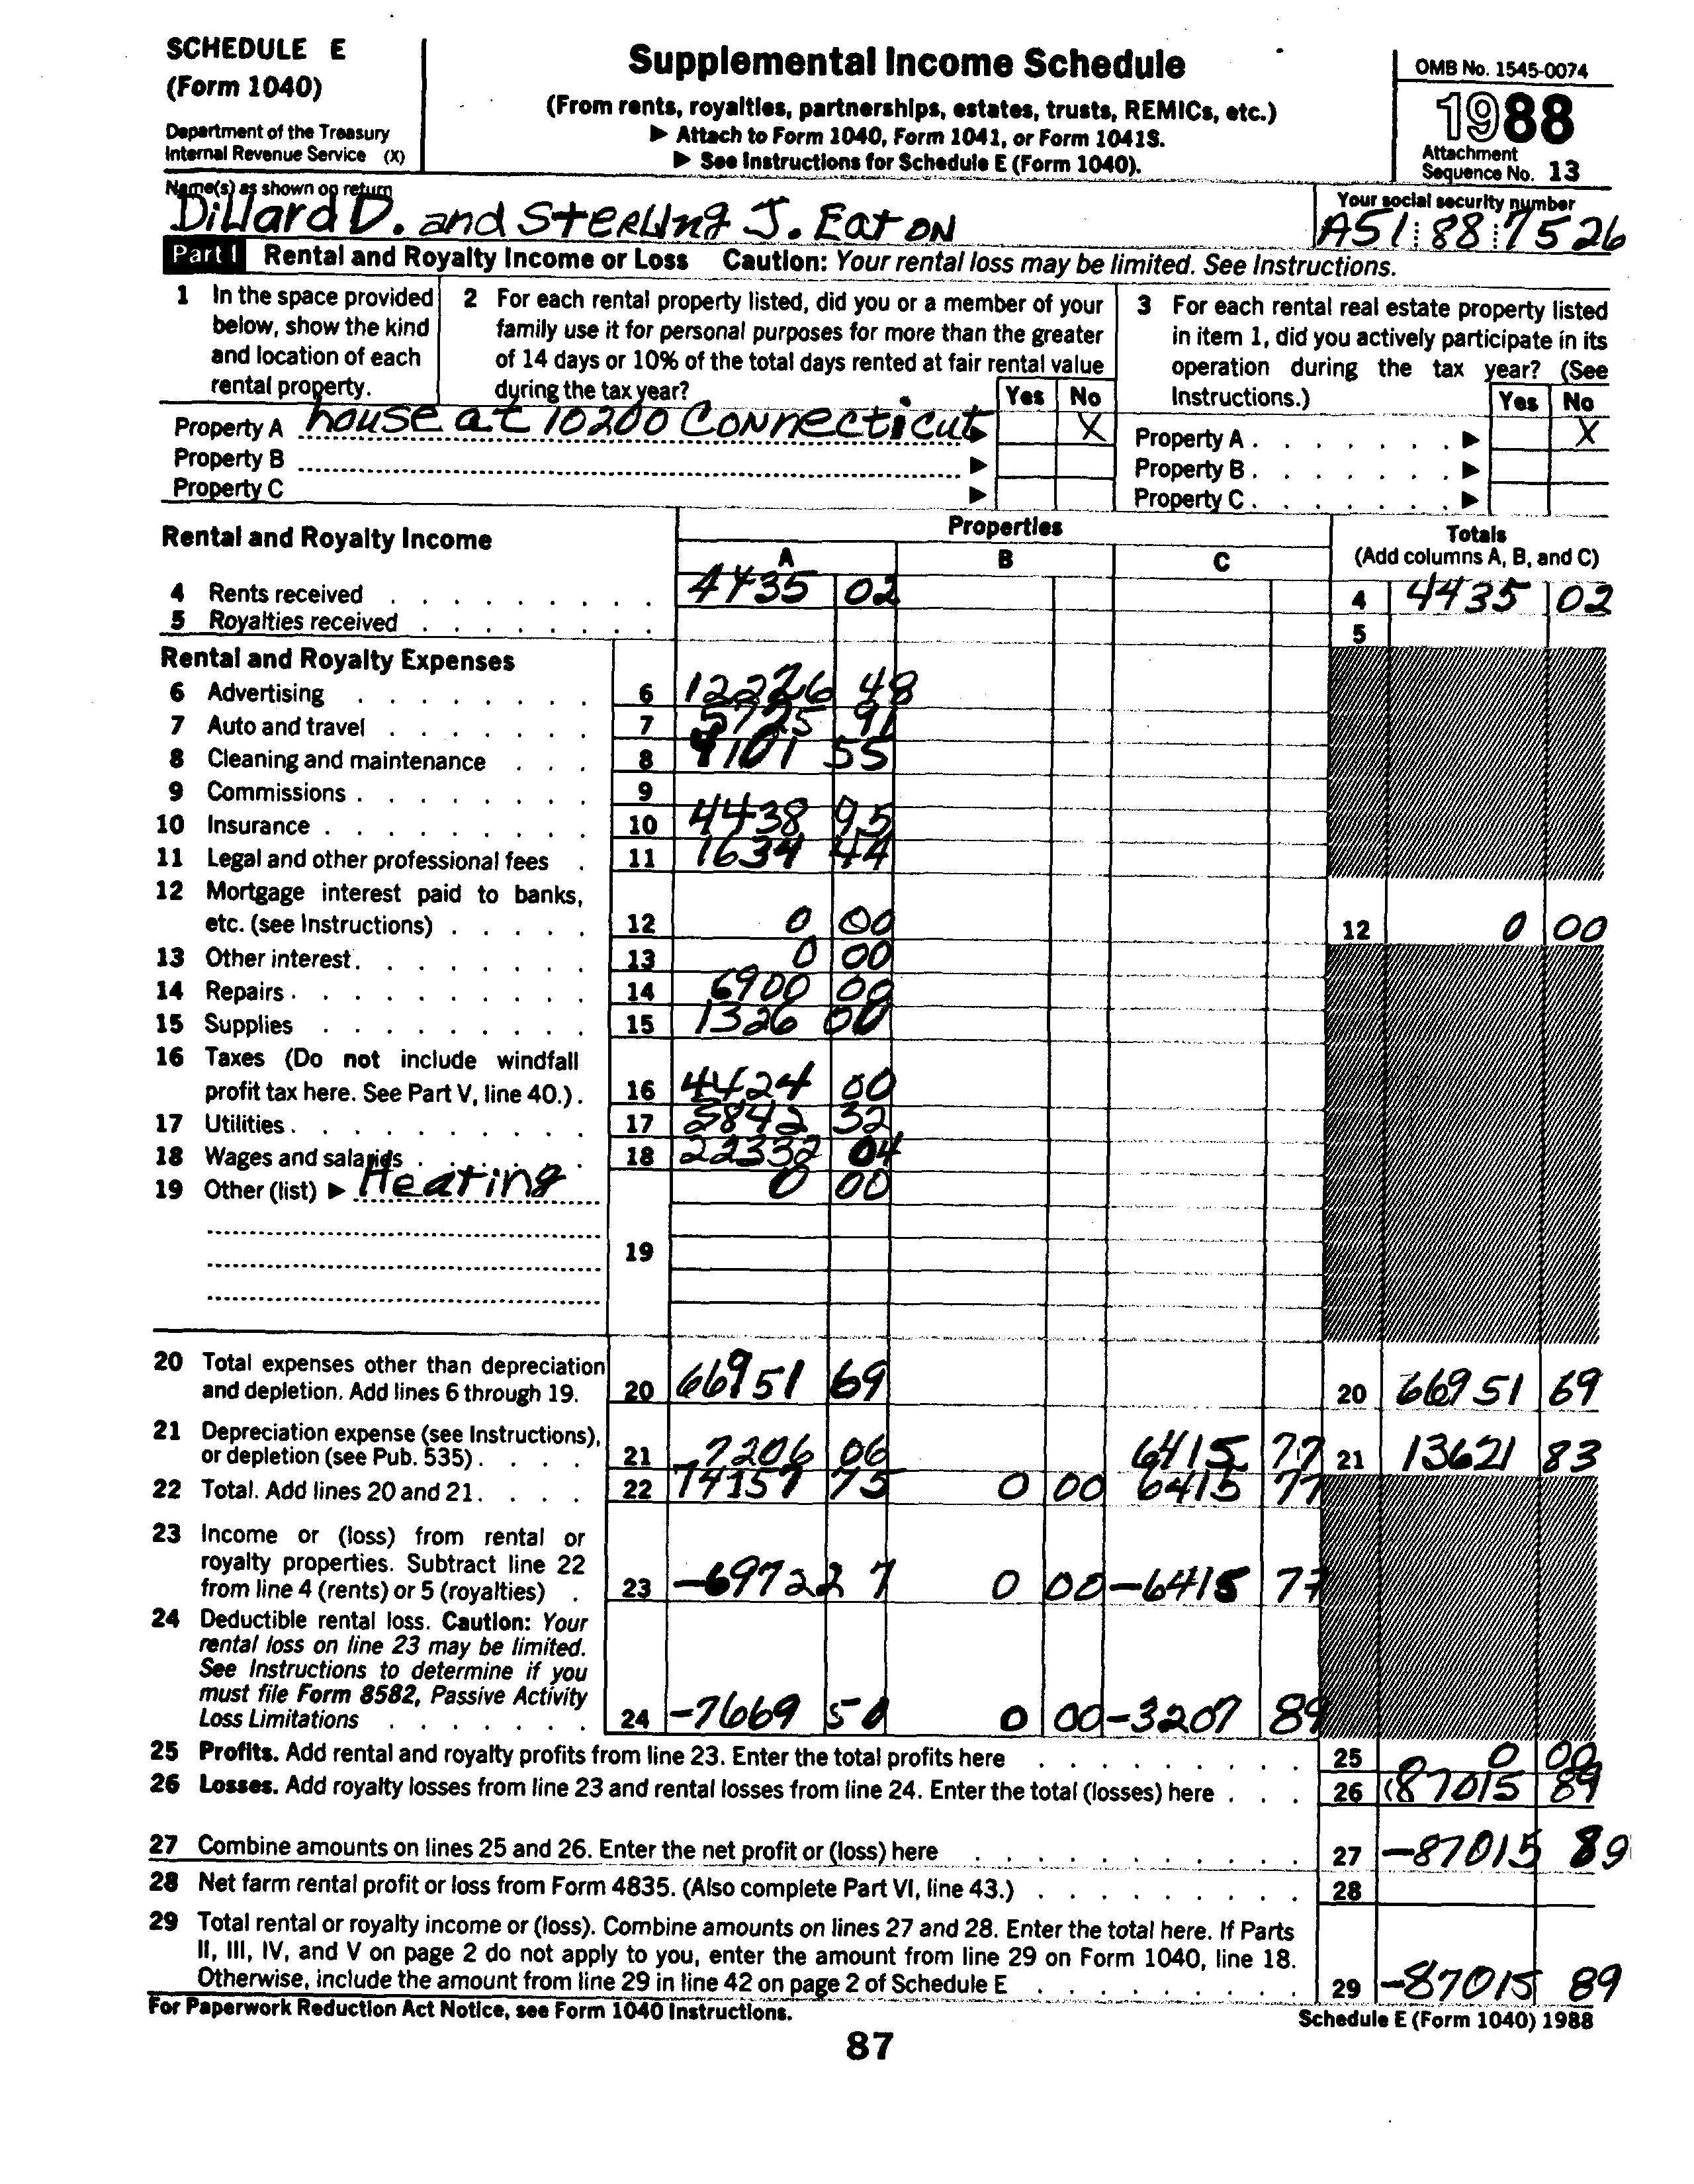 SCHEDULE E
(Form 1040)
Department of the Treasury
Internal Revenue Service (X)
Supplemental Income Schedule
(From rents, royalties, partnerships, estates, trusts, REMICs, etc.)
▶ Attach to Form 1040, Form 1041, or Form 1041S.
▶ See Instructions for Schedule E (Form 1040).
OMB No. 1545-0074
1988
Attachment
Sequence No. 13
Name(s) as shown on return
Dillard D. and Sterling J. Eaton
Your social security number
A51 88 7526
Part I Rental and Royalty Income or Loss Caution: Your rental loss may be limited. See Instructions.
1 In the space provided
below, show the kind
and location of each
rental property.
2 For each rental property listed, did you or a member of your
family use it for personal purposes for more than the greater
of 14 days or 10% of the total days rented at fair rental value
during the tax year?
Yes No
3 For each rental real estate property listed
in item 1, did you actively participate in its
operation during the tax year? (See
Instructions.)
Yes No
Property A house at 10200 Connecticut ▶ X
Property B ▶
Property C ▶
Property A . . . . . . . ▶ X
Property B . . . . . . . ▶
Property C . . . . . . . ▶
Rental and Royalty Income
Properties
A B C
Totals
(Add columns A, B, and C)
4 Rents received 4435 02 4 4435 02
5 Royalties received 5
Rental and Royalty Expenses
6 Advertising 6 12226 48
7 Auto and travel 7 5725 91
8 Cleaning and maintenance 8 9101 55
9 Commissions 9
10 Insurance 10 4438 95
11 Legal and other professional fees 11 1634 44
12 Mortgage interest paid to banks,
etc. (see Instructions) 12 0 00 12 0 00
13 Other interest 13 0 00
14 Repairs 14 6900 00
15 Supplies 15 1326 00
16 Taxes (Do not include windfall
profit tax here. See Part V, line 40.) 16 4424 00
17 Utilities 17 5842 32
18 Wages and salaries 18 22332 04
19 Other (list) ▶ Heating 0 00
19
20 Total expenses other than depreciation
and depletion. Add lines 6 through 19. 20 66951 69 20 66951 69
21 Depreciation expense (see Instructions),
or depletion (see Pub. 535) 21 7206 06 6415 77 21 13621 83
22 Total. Add lines 20 and 21 22 74157 75 0 00 6415 77
23 Income or (loss) from rental or
royalty properties. Subtract line 22
from line 4 (rents) or 5 (royalties) 23 -69722 7 0 00 -6415 77
24 Deductible rental loss. Caution: Your
rental loss on line 23 may be limited.
See Instructions to determine if you
must file Form 8582, Passive Activity
Loss Limitations 24 -7669 50 0 00 -3207 89
25 Profits. Add rental and royalty profits from line 23. Enter the total profits here 25 0 00
26 Losses. Add royalty losses from line 23 and rental losses from line 24. Enter the total (losses) here 26 (87015 89
27 Combine amounts on lines 25 and 26. Enter the net profit or (loss) here 27 -87015 89
28 Net farm rental profit or loss from Form 4835. (Also complete Part VI, line 43.) 28
29 Total rental or royalty income or (loss). Combine amounts on lines 27 and 28. Enter the total here. If Parts
II, III, IV, and V on page 2 do not apply to you, enter the amount from line 29 on Form 1040, line 18.
Otherwise, include the amount from line 29 in line 42 on page 2 of Schedule E 29 -87015 89
For Paperwork Reduction Act Notice, see Form 1040 Instructions.
Schedule E (Form 1040) 1988
87